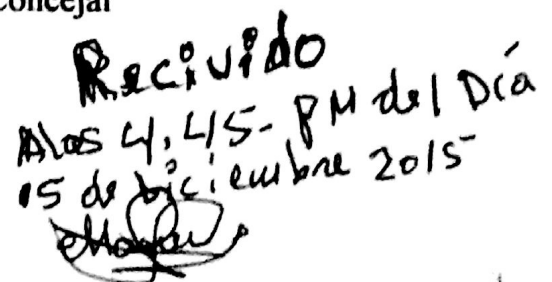 Concejal
Recivido
Alas 4,45- PM del Día
15 de Diciembre 2015